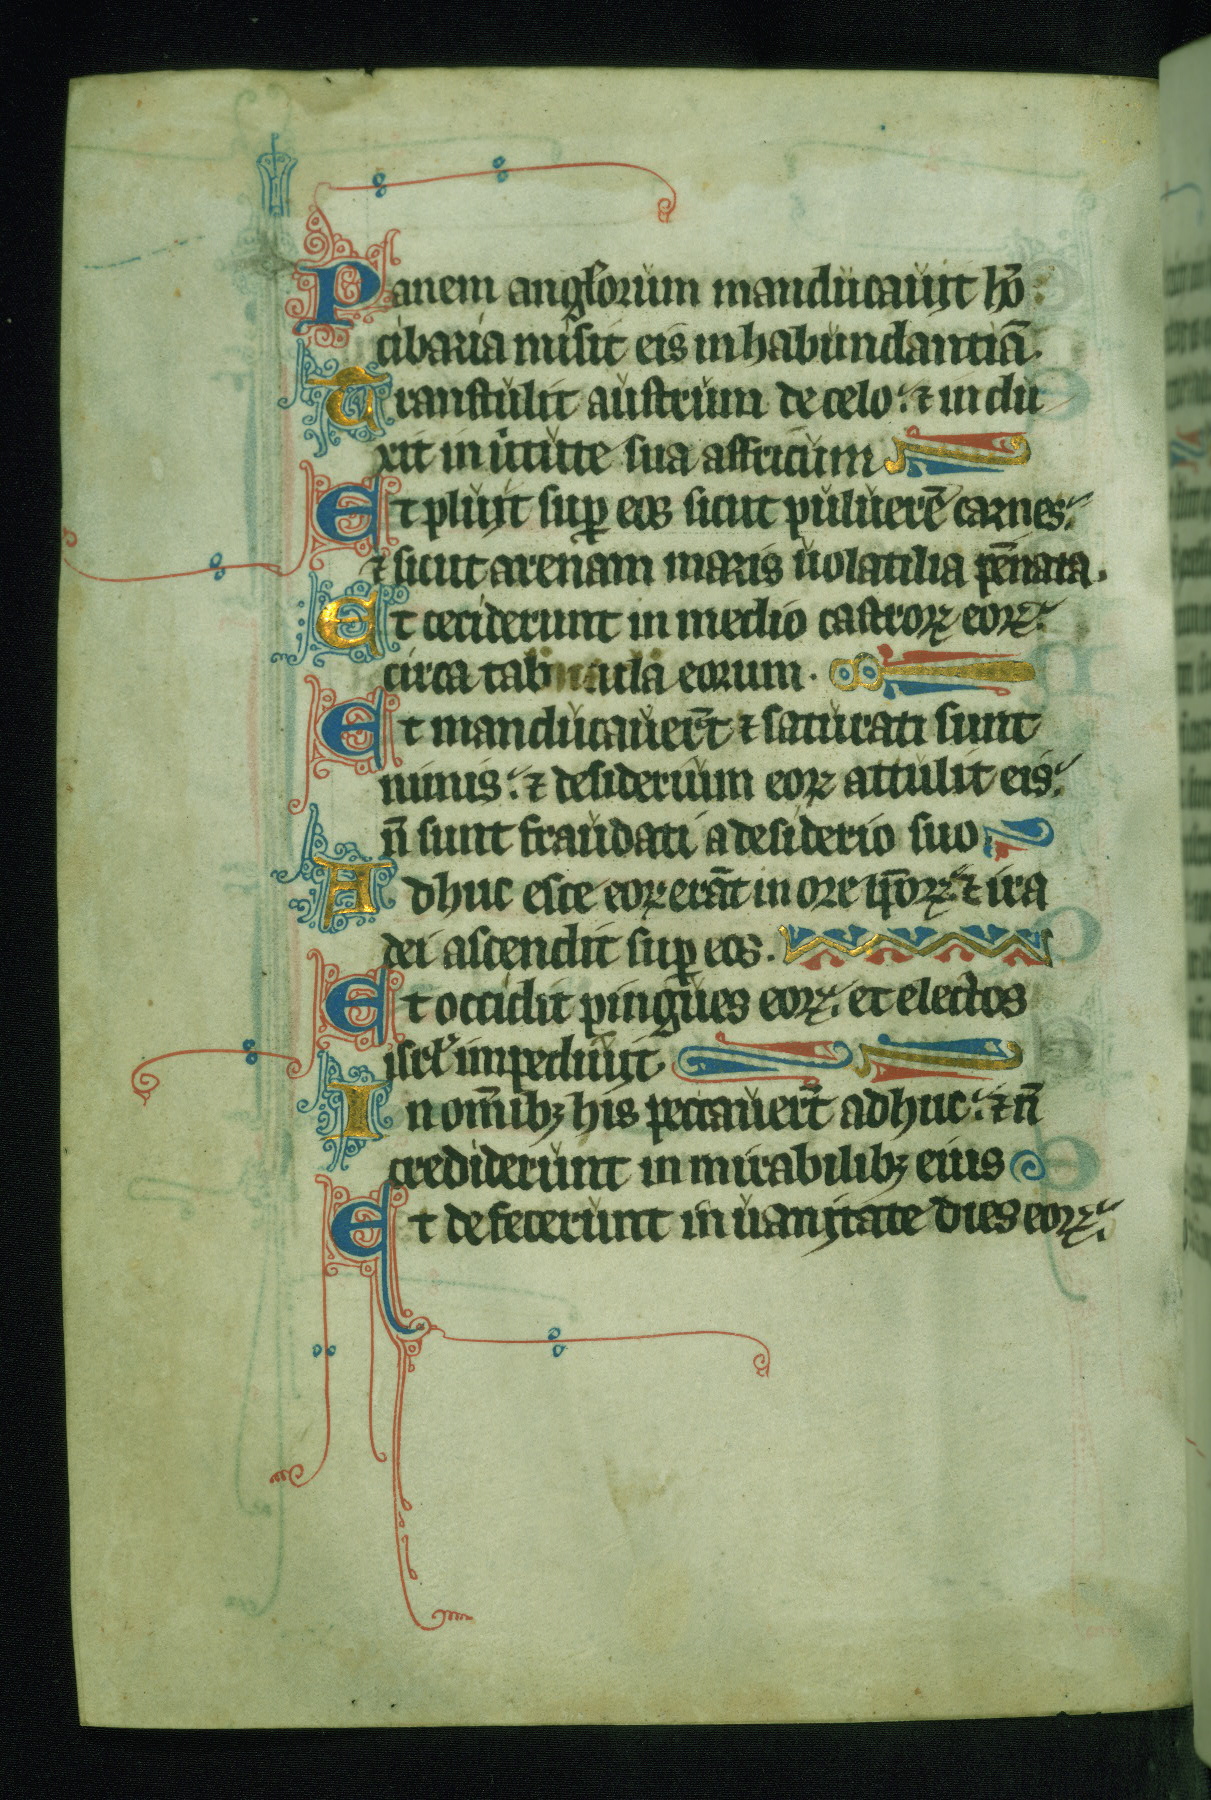 Panem anglorum manducauit hō
cibaria misit eis in habundantiā.
Transtulit austrum de celo: ⁊ indu
xit in uirtute sua affricum
Et pluit sup eos sicut puluerē carnes:
⁊ sicut arenam maris uolatilia pēnata.
Et ceciderunt in medio castroꝝ eoꝝ:
circa tab  cula eorum.
Et manducauer̄t ⁊ saturati sunt
nimis: ⁊ desiderium eoꝝ attulit eis:
n̄ sunt fraudati a desiderio suo
Adhuc esce eoꝝ erāt in ore ip̄oꝝ: ⁊ ira
dei ascendit suꝑ eos.
Et occidit pingues eoꝝ: et electos
isrl̄ impediuit
In om̄ibꝫ his peccauer̄t adhuc: ⁊ n̄
crediderunt in mirabilibꝫ eius
Et defecerunt in uanitate dies eoꝝ: